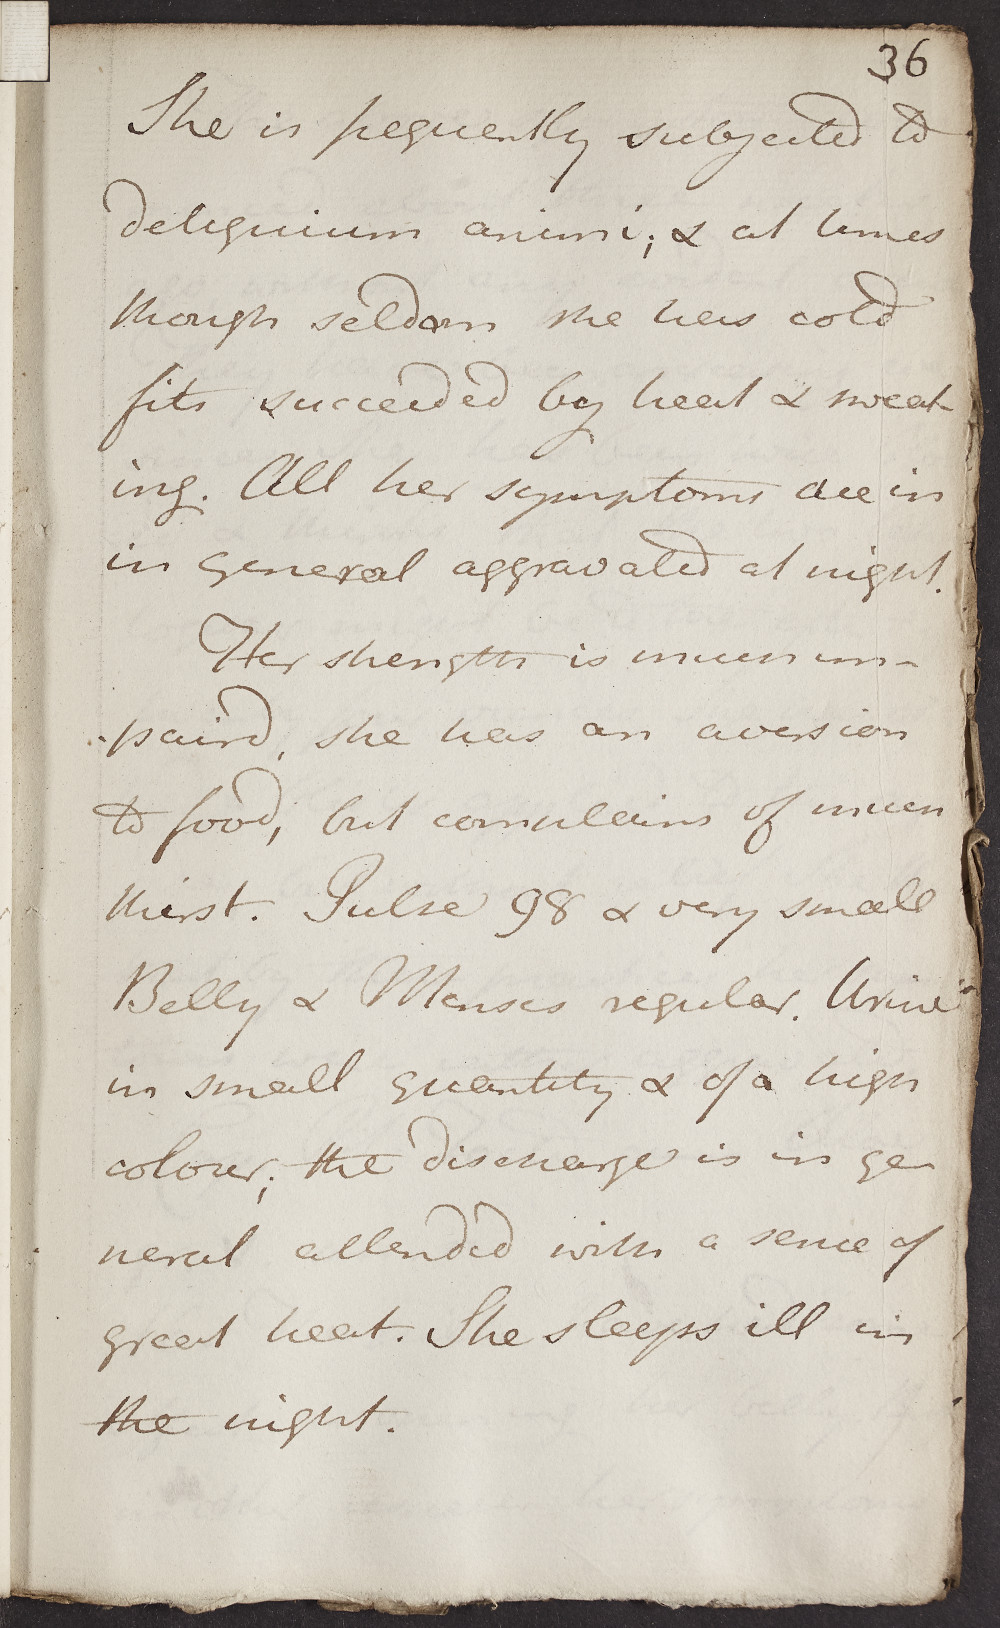 36
She is frequently subjected to
deliquium animi; & at times
though seldom she has cold
fits succeeded by heat & sweat-
ing. All her symptoms are in
in general aggravated at night.
Her strength is much im-
paird, she has an aversion
to food, but complains of much
thirst. Pulse 98 & very small
Belly & Menses regular. Urine
in small quantity & of a high
colour; the discharge is in ge
neral attended with a sence of
great heat. She sleeps ill in
the night.